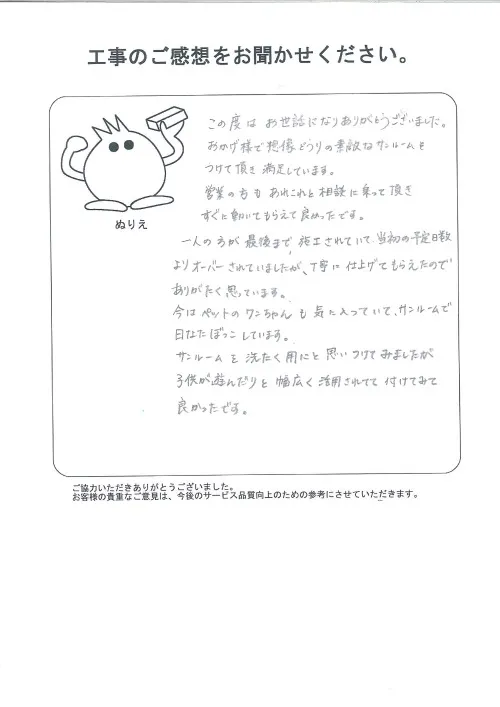 工事のご感想をお聞かせください。
この度は お世話になりありがとうございました。
おかげ様で想像どうりの素敵なサンルームを
つけて頂き 満足しています。
営業の方も あれこれと相談に乗って頂き
すぐに動いてもらえて良かったです。
一人の方が 最後まで 施工されていて、当初の予定日数
よりオーバーされていましたが、丁寧に 仕上げてもらえたので
ありがたく思っています。
今は ペットの ワンちゃんも 気に入っていて、サンルームで
日なたぼっこしています。
サンルームを 洗たく用にと 思いつけてみましたが
子供が遊んだりと 幅広く 活用されてて 付けてみて
良かったです。
ぬりえ
ご協力いただきありがとうございました。
お客様の貴重なご意見は、今後のサービス品質向上のための参考にさせていただきます。